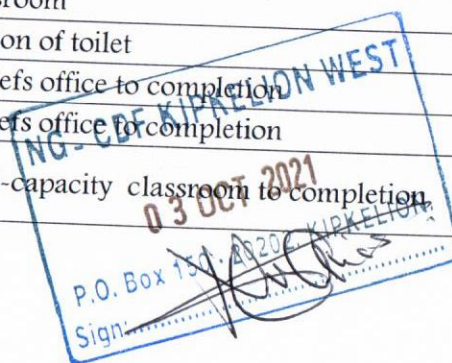 sroom
on of toilet
efs office to completion
efs office to completion
-capacity classroom to completion
NG-CDF KIPKELION WEST
03 OCT 2021
P.O. Box 150 - 20202, KIPKELION.
Sign: